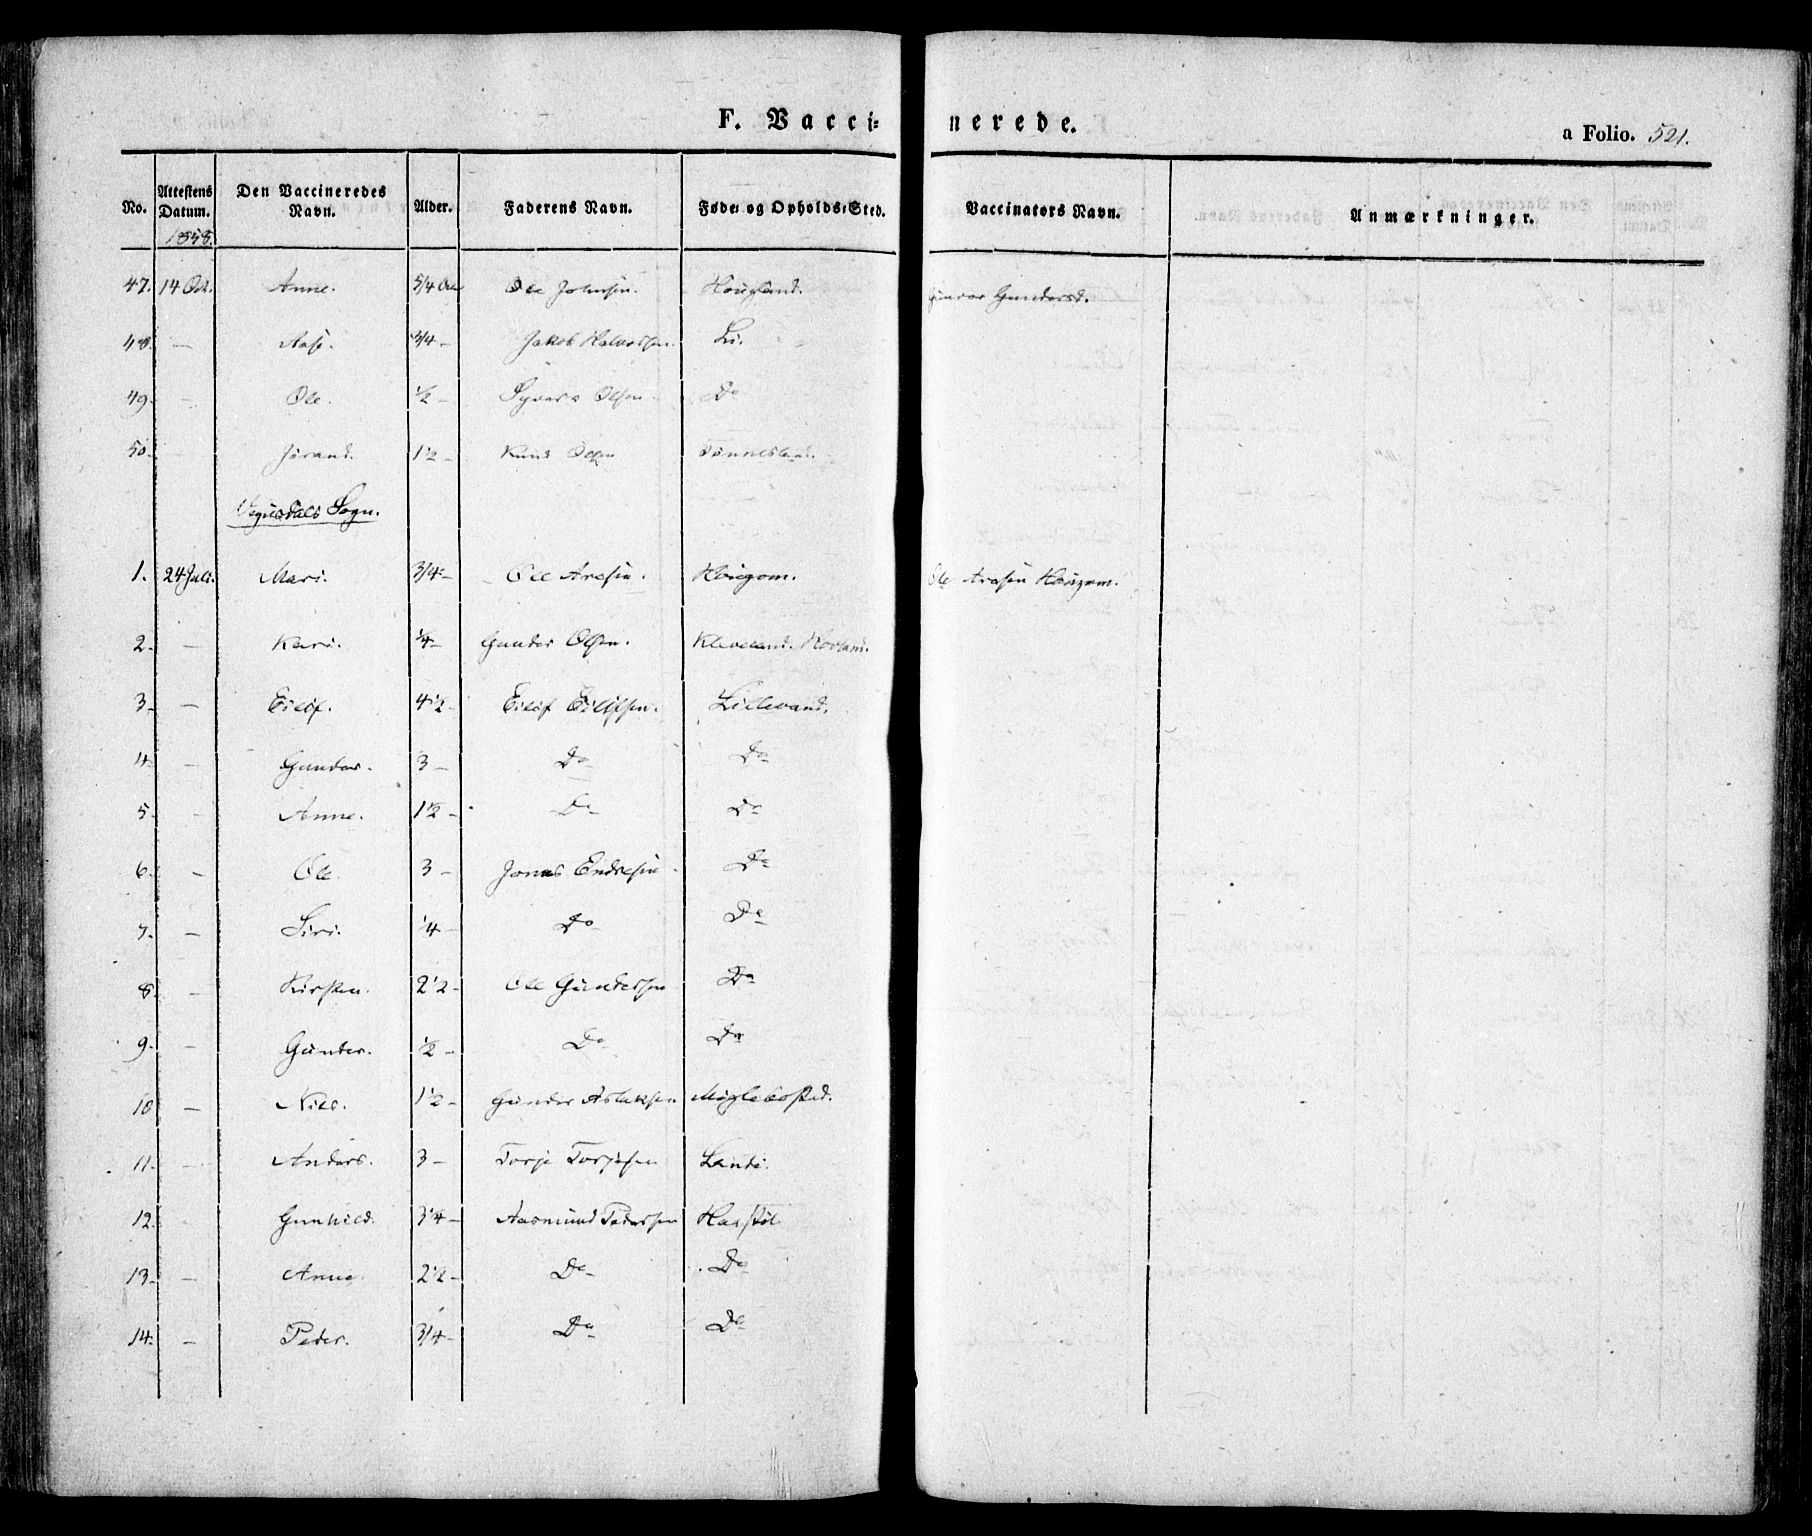 F. Vaccinerede.
a Folio. 521.
No. Attestens Datum. Den Vaccineredes Navn. Alder. Faderens Navn. Føde- og Opholds-Sted. Vaccinators Navn. Anmærkninger.
1858.
47. 14 Oct. Anne. 5/4 Ole Johnsen. Hougland. Gunvor Gundersd.
48. — Aase. 3/4 — Jakob Halvorsen. Li.
49. — Ole. 1/2 — Syvert Olsen. Do
50. — Jørand. 1 1/2 — Knud Olsen Tønnesland.
Vegusdals Sogn.
1. 24 Juli. Mari. 3/4 — Ole Aresen. Hougom. Ole Aresen Hougom.
2. — Kari. 1/4 — Gunder Olsen. Kleveland. Hovland.
3. — Eilef. 4 1/2 — Eilef Eilefsen. Lillevand.
4. — Gunder. 3 — Do Do
5. — Anne. 1 1/2 — Do Do
6. — Ole. 3 — Jonas Endresen. Do
7. — Siri. 1/4 — Do Do
8. — Kirsten. 2 1/2 — Ole Gundersen Do
9. — Gunder. 1/2 — Do Do
10 — Niels. 1 1/2 — Gunder Aslaksen Møglebostad.
11. — Anders. 3 — Torje Torjesen Lande.
12. — Gunhild. 3 1/4 — Aasmund Pedersen Haastøl
13. — Anne. 2 1/2 — Do Do
14. — Peder. 3/4 — Do Do